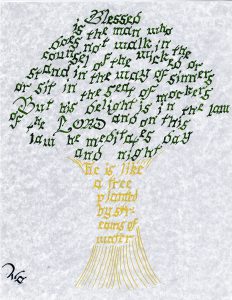 Blessed
is the man who
does not walk in the
counsel of the wicked or
stand in the way of sinners
or sit in the seat of mockers
But his delight is in the law
of the LORD and on this
law he meditates day
and night
He is like
a tree
planted
by str-
eams of
water